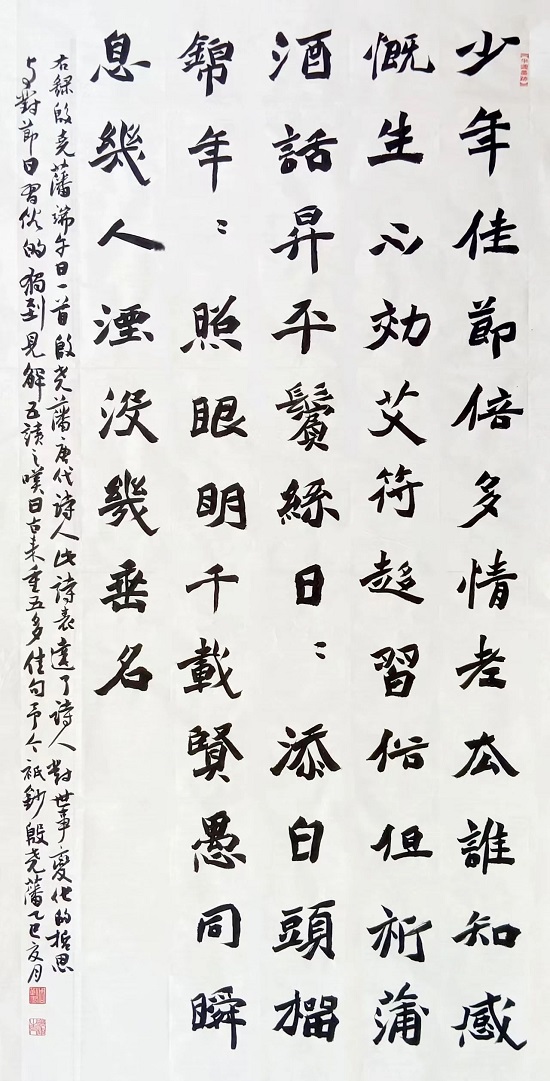 少年佳節倍多情老去誰知感
慨生不効艾符趍習俗但祈蒲
酒話昇平鬢絲日〻添白頭榴
錦年〻照眼明千載賢愚同瞬
息幾人湮没幾垂名
右録殷尧藩端午日一首殷尧藩唐代诗人此詩表達了诗人對世事變化的哲思
与對節日習俗的獨到見解五讀之嘆曰古来重五多佳句予今祇鈔殷尧藩乙巳夏月